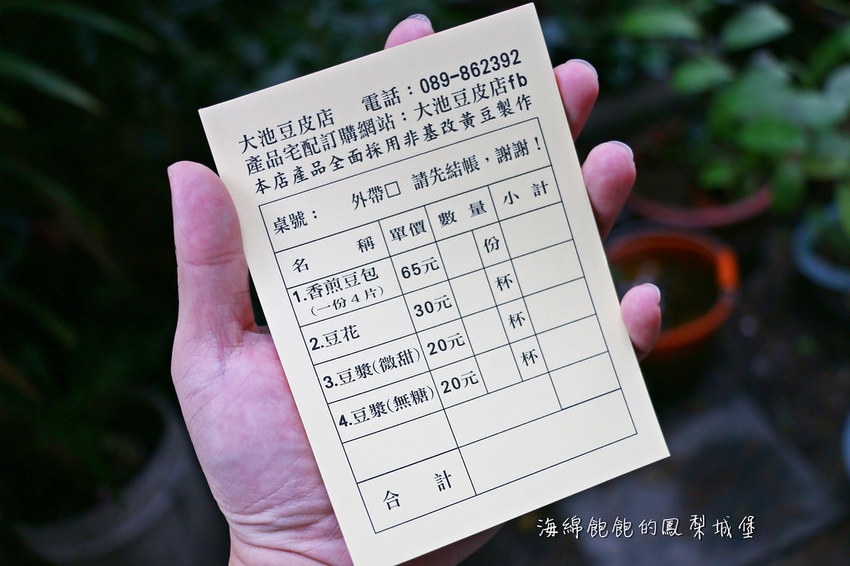 大池豆皮店 電話：089-862392
產品宅配訂購網站：大池豆皮店fb
本店產品全面採用非基改黃豆製作
桌號： 外帶□ 請先結帳，謝謝！
名稱 單價 數量 小計
1.香煎豆包 65元 份
(一份4片)
2.豆花 30元 杯
3.豆漿(微甜) 20元 杯
4.豆漿(無糖) 20元 杯
合計
海綿飽飽的鳳梨城堡